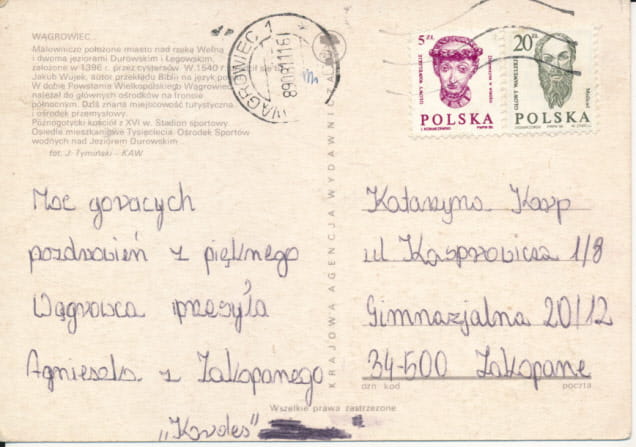 WĄGROWIEC
Malowniczo położone miasto nad rzeką Wełną
i dwoma jeziorami Durowskim i Łęgowskim,
założone w 1396 r. przez cystersów. W 1540 r.
Jakub Wujek, autor przekładu Biblii na język
W dobie Powstania Wielkopolskiego Wągrowiec
należał do głównych ośrodków na froncie
północnym. Dziś znana miejscowość turystyczna
i ośrodek przemysłowy.
Późnogotycki kościół z XVI w. Stadion sportowy
Osiedle mieszkaniowe Tysiąclecia. Ośrodek Sportów
wodnych nad Jeziorem Durowskim
fot. J. Tymiński - KAW
WĄGROWIEC 1
5 ZŁ
POLSKA
20 ZŁ
POLSKA
Moc gorących
pozdrowień z pięknego
Wągrowca przesyła
Agnieszka z Zakopanego
KRAJOWA AGENCJA WYDAWNICZA
Katarzyna Karp
ul Kasprowicza 1/8
Gimnazjalna 20/12
34-500 Zakopane
ozn kod poczta
Wszelkie prawa zastrzeżone